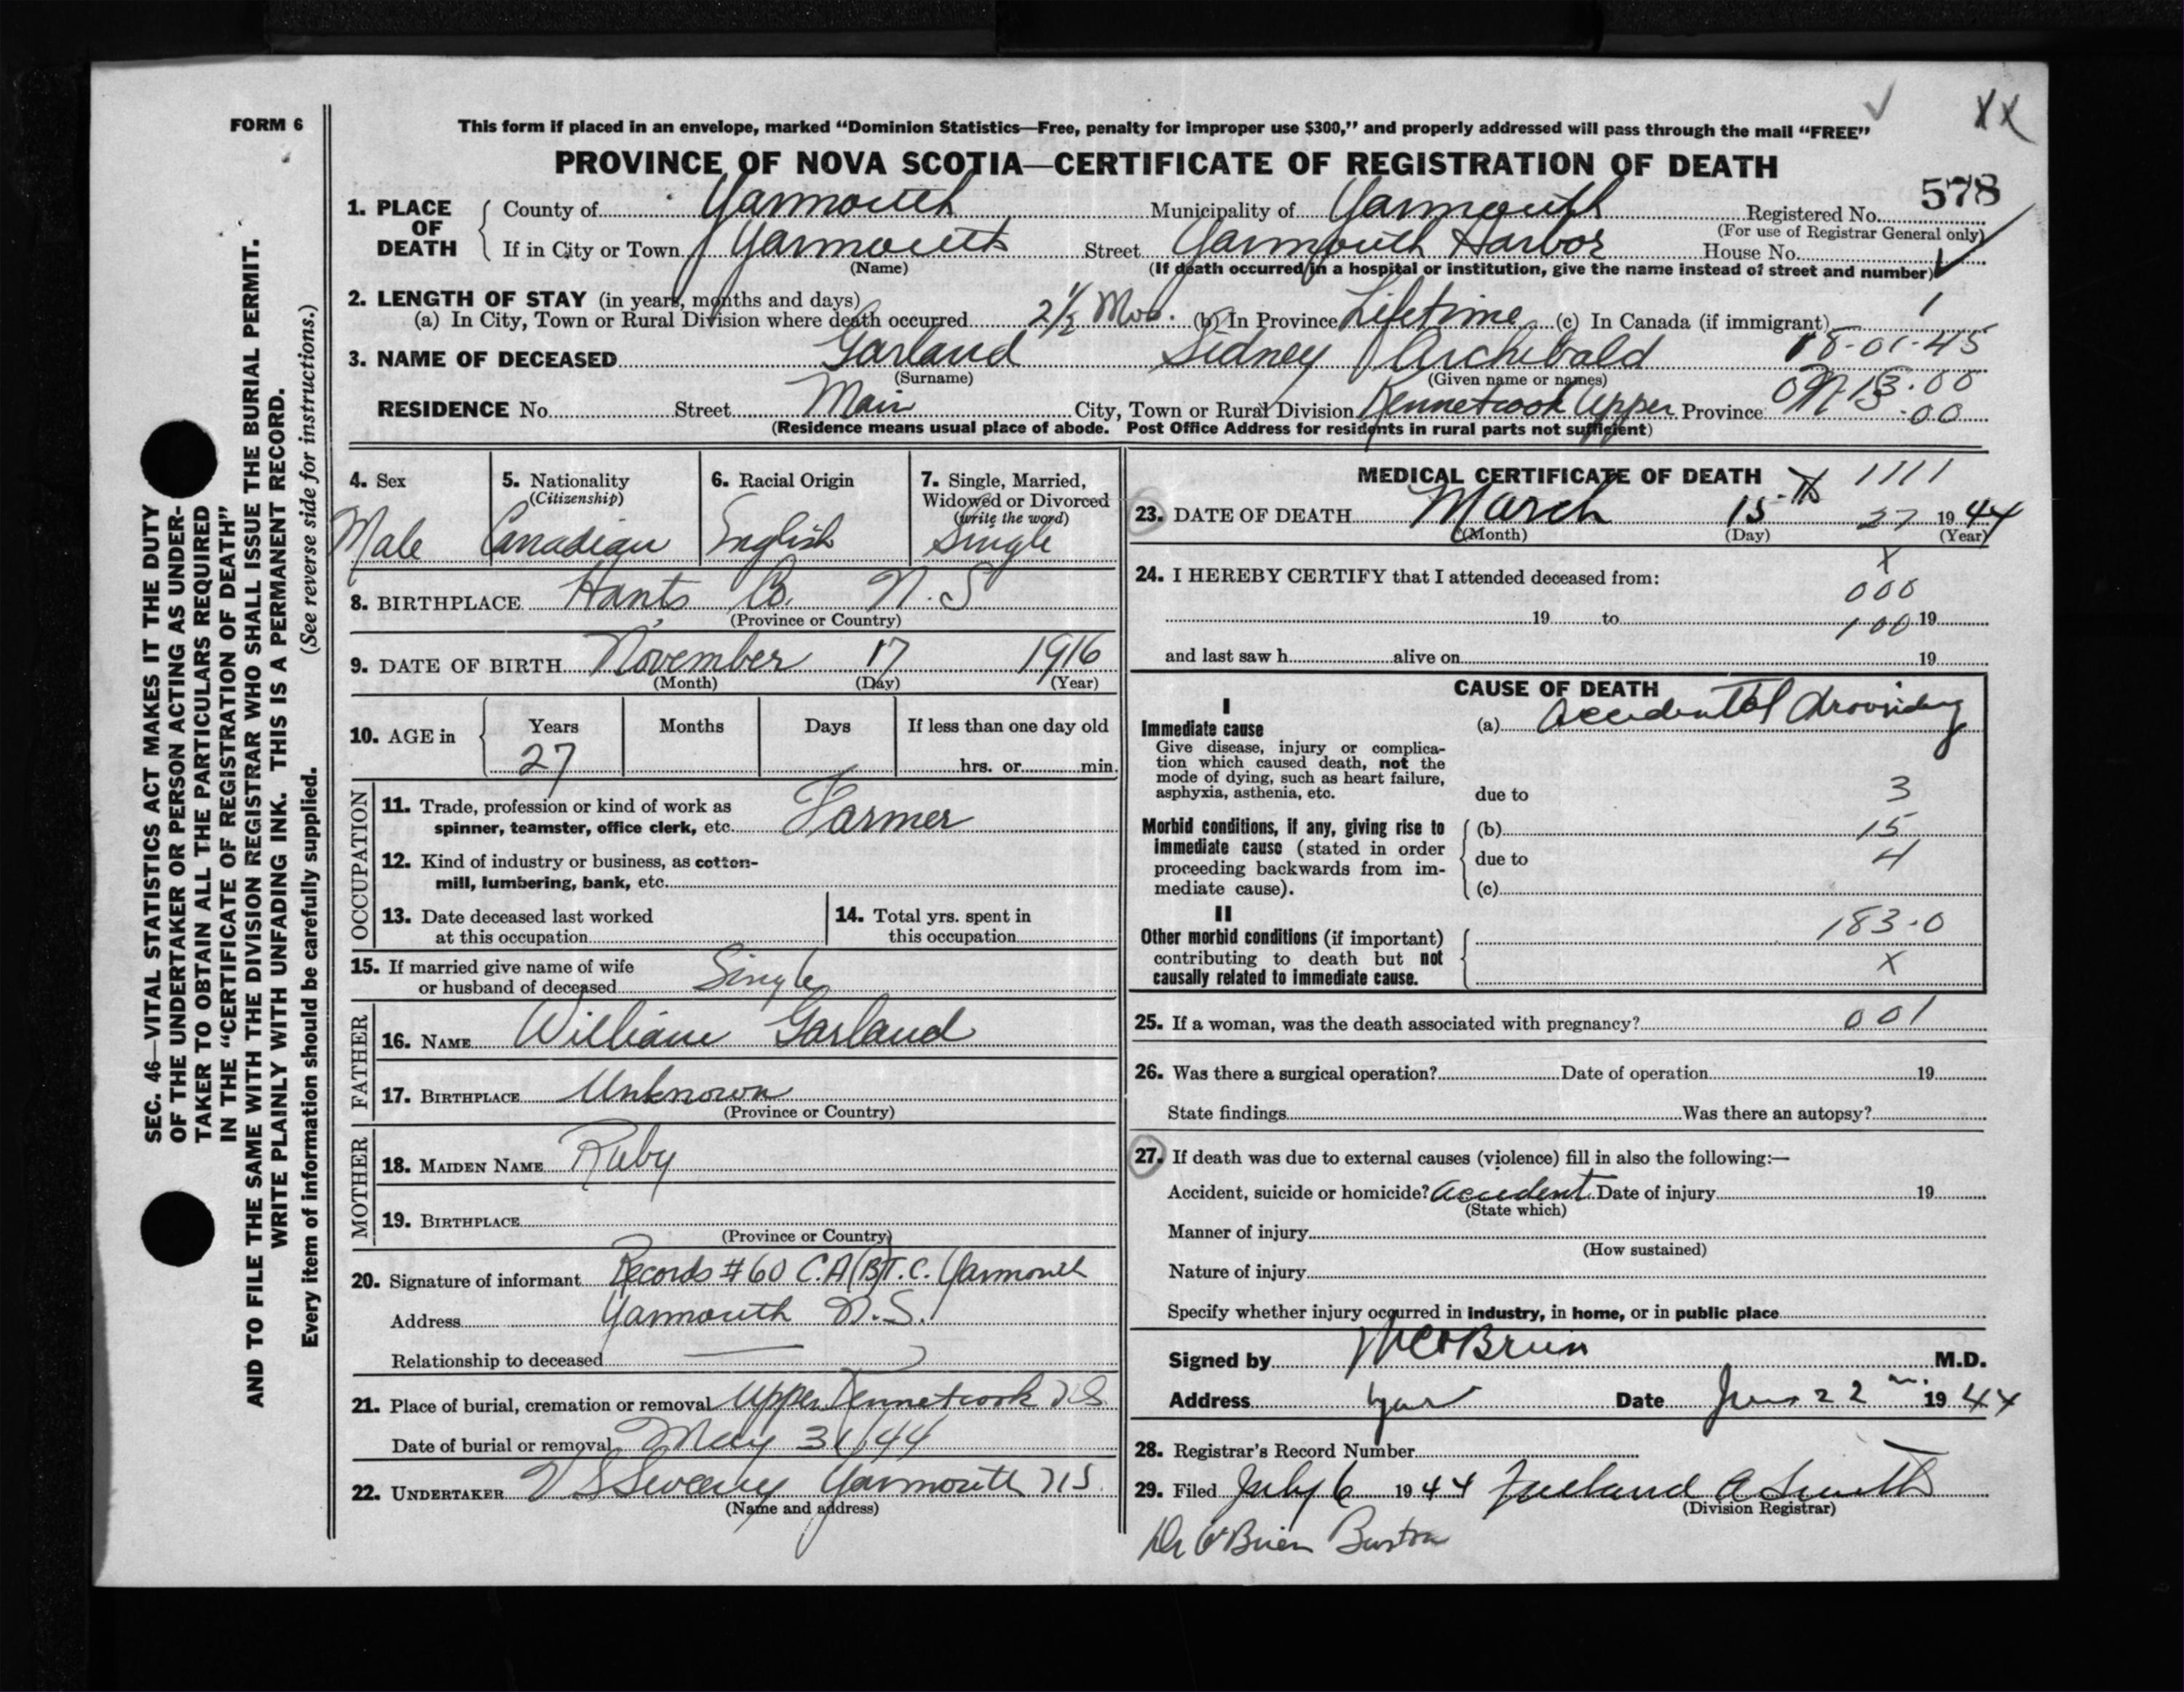 FORM 6
This form if placed in an envelope, marked "Dominion Statistics—Free, penalty for improper use $300," and properly addressed will pass through the mail "FREE"
XX
PROVINCE OF NOVA SCOTIA—CERTIFICATE OF REGISTRATION OF DEATH
578
1. PLACE OF DEATH
County of Yarmouth Municipality of Yarmouth Registered No.
(For use of Registrar General only)
If in City or Town Yarmouth Street Yarmouth Harbor House No.
(Name) (If death occurred in a hospital or institution, give the name instead of street and number)
2. LENGTH OF STAY (in years, months and days)
(a) In City, Town or Rural Division where death occurred 2 1/2 Mos. (b) In Province Lifetime (c) In Canada (if immigrant) 1
3. NAME OF DECEASED Garland Sidney Archibald 18-01-45
(Surname) (Given name or names)
RESIDENCE No. Street Main City, Town or Rural Division Kennetcook Upper Province
(Residence means usual place of abode. Post Office Address for residents in rural parts not sufficient)
4. Sex
Male
5. Nationality
(Citizenship)
Canadian
6. Racial Origin
English
7. Single, Married,
Widowed or Divorced
(write the word)
Single
8. BIRTHPLACE Hants Co. N.S
(Province or Country)
9. DATE OF BIRTH November 17 1916
(Month) (Day) (Year)
10. AGE in Years Months Days If less than one day old
27 hrs. or min.
OCCUPATION
11. Trade, profession or kind of work as
spinner, teamster, office clerk, etc. Farmer
12. Kind of industry or business, as cotton-
mill, lumbering, bank, etc.
13. Date deceased last worked
at this occupation
14. Total yrs. spent in
this occupation
15. If married give name of wife
or husband of deceased Single
FATHER
16. NAME William Garland
17. BIRTHPLACE Unknown
(Province or Country)
MOTHER
18. MAIDEN NAME Ruby
19. BIRTHPLACE
(Province or Country)
20. Signature of informant Records #60 C.A.(B)T.C. Yarmouth
Address Yarmouth N.S.
Relationship to deceased
21. Place of burial, cremation or removal Upper Kennetcook N.S
Date of burial or removal May 31/44
22. UNDERTAKER V S Sweeny Yarmouth N.S.
(Name and address)
MEDICAL CERTIFICATE OF DEATH 1111
23. DATE OF DEATH March 15-th 27 1944
(Month) (Day) (Year)
X
24. I HEREBY CERTIFY that I attended deceased from:
000
19 to 100 19
and last saw h alive on 19
CAUSE OF DEATH
I
Immediate cause
Give disease, injury or complica-
tion which caused death, not the
mode of dying, such as heart failure,
asphyxia, asthenia, etc.
(a) Accidental drowning
3
due to
Morbid conditions, if any, giving rise to
immediate cause (stated in order
proceeding backwards from im-
mediate cause).
(b) 15
due to 4
(c)
II
Other morbid conditions (if important)
contributing to death but not
causally related to immediate cause.
183-0
X
25. If a woman, was the death associated with pregnancy? 001
26. Was there a surgical operation? Date of operation 19
State findings Was there an autopsy?
27. If death was due to external causes (violence) fill in also the following:—
Accident, suicide or homicide? Accident Date of injury 19
(State which)
Manner of injury
(How sustained)
Nature of injury
Specify whether injury occurred in industry, in home, or in public place
Signed by O'Brien M.D.
Address Yar Date June 22 1944
28. Registrar's Record Number
29. Filed July 6 1944 A Smith
(Division Registrar)
Dr O'Brien Burton
SEC. 46—VITAL STATISTICS ACT MAKES IT THE DUTY
OF THE UNDERTAKER OR PERSON ACTING AS UNDER-
TAKER TO OBTAIN ALL THE PARTICULARS REQUIRED
IN THE "CERTIFICATE OF REGISTRATION OF DEATH"
AND TO FILE THE SAME WITH THE DIVISION REGISTRAR WHO SHALL ISSUE THE BURIAL PERMIT.
WRITE PLAINLY WITH UNFADING INK. THIS IS A PERMANENT RECORD.
Every item of information should be carefully supplied. (See reverse side for instructions.)